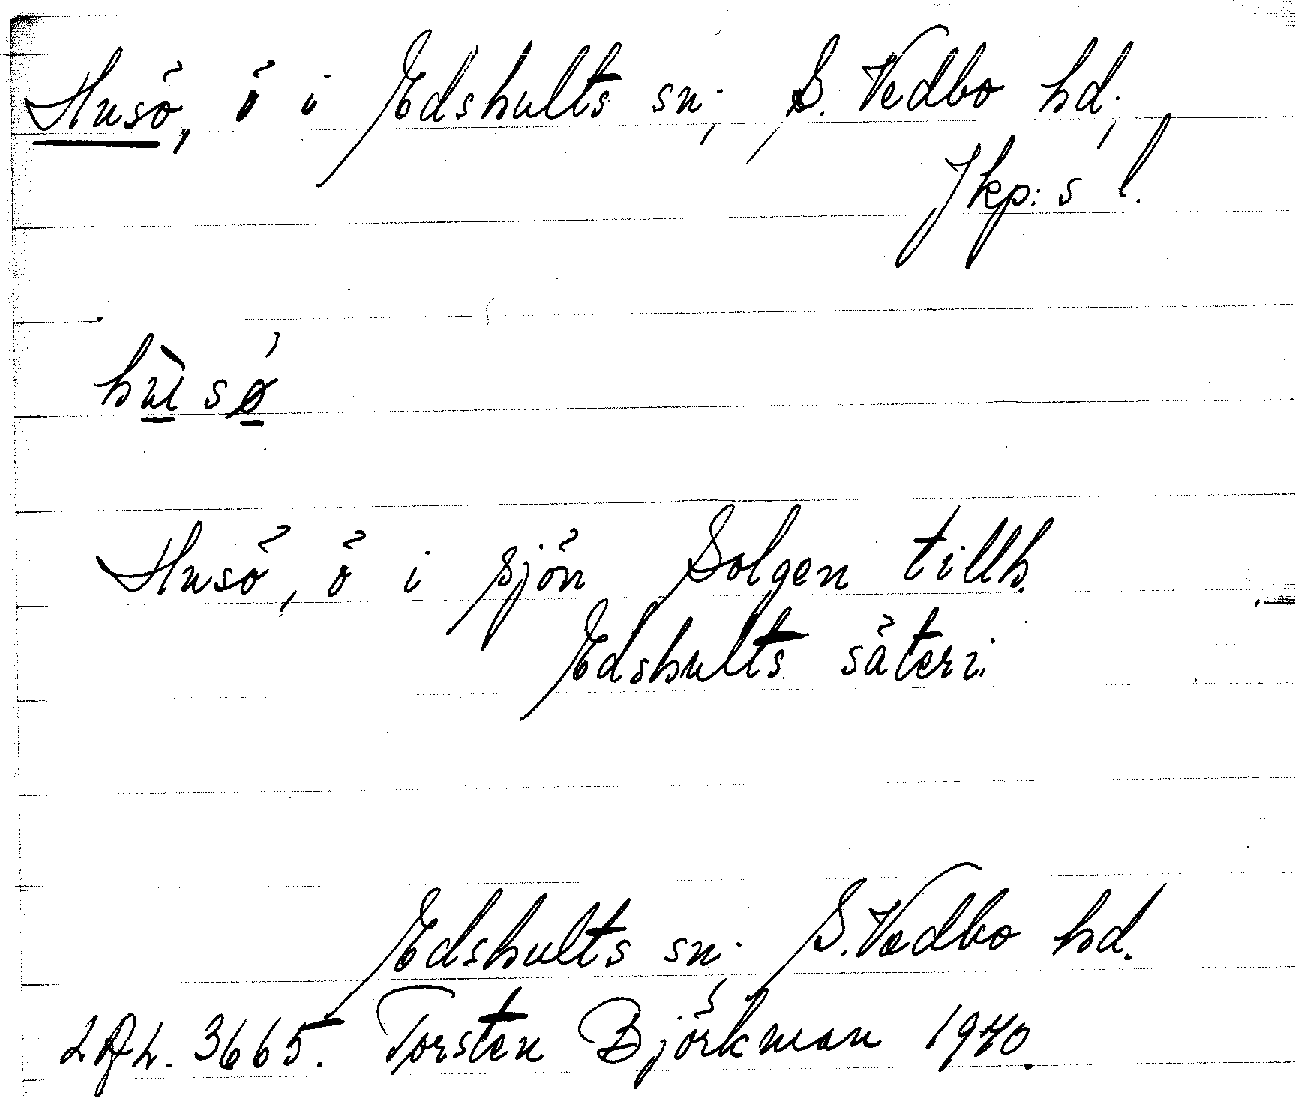 Husö, ö i Edshults sn; S. Vedbo hd;
Jkp:s l.
hùsø
Husö, ö i sjön Solgen tillh.
Edshults säteri.
Edshults sn; S. Vedbo hd.
3665. Torsten Björkman 1940.